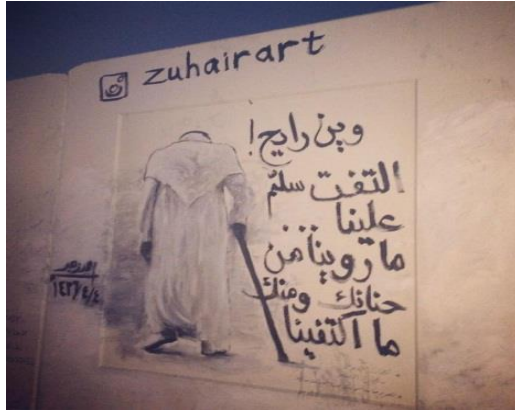 zuhairart
وين رايح!
التفت سلم
علينا...
ما روينا من
حنانك ومنك
ما اكتفينا